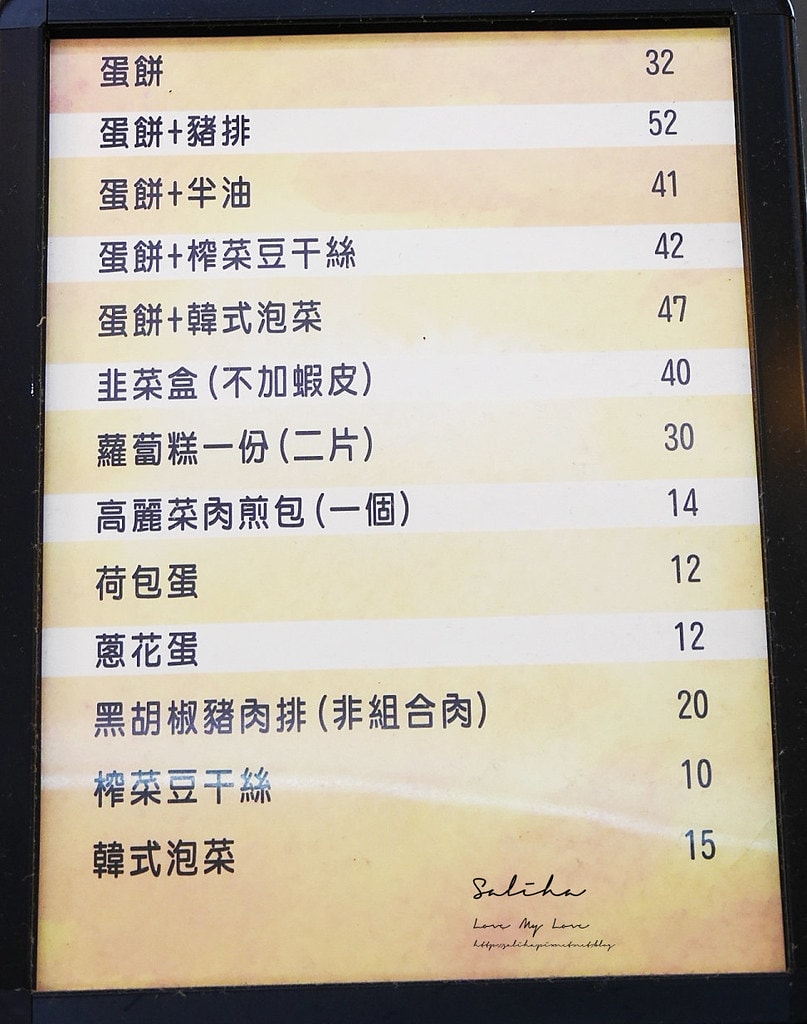 蛋餅 32
蛋餅+豬排 52
蛋餅+半油 41
蛋餅+榨菜豆干絲 42
蛋餅+韓式泡菜 47
韭菜盒(不加蝦皮) 40
蘿蔔糕一份(二片) 30
高麗菜肉煎包(一個) 14
荷包蛋 12
蔥花蛋 12
黑胡椒豬肉排(非組合肉) 20
榨菜豆干絲 10
韓式泡菜 15
Saliha
Love My Love